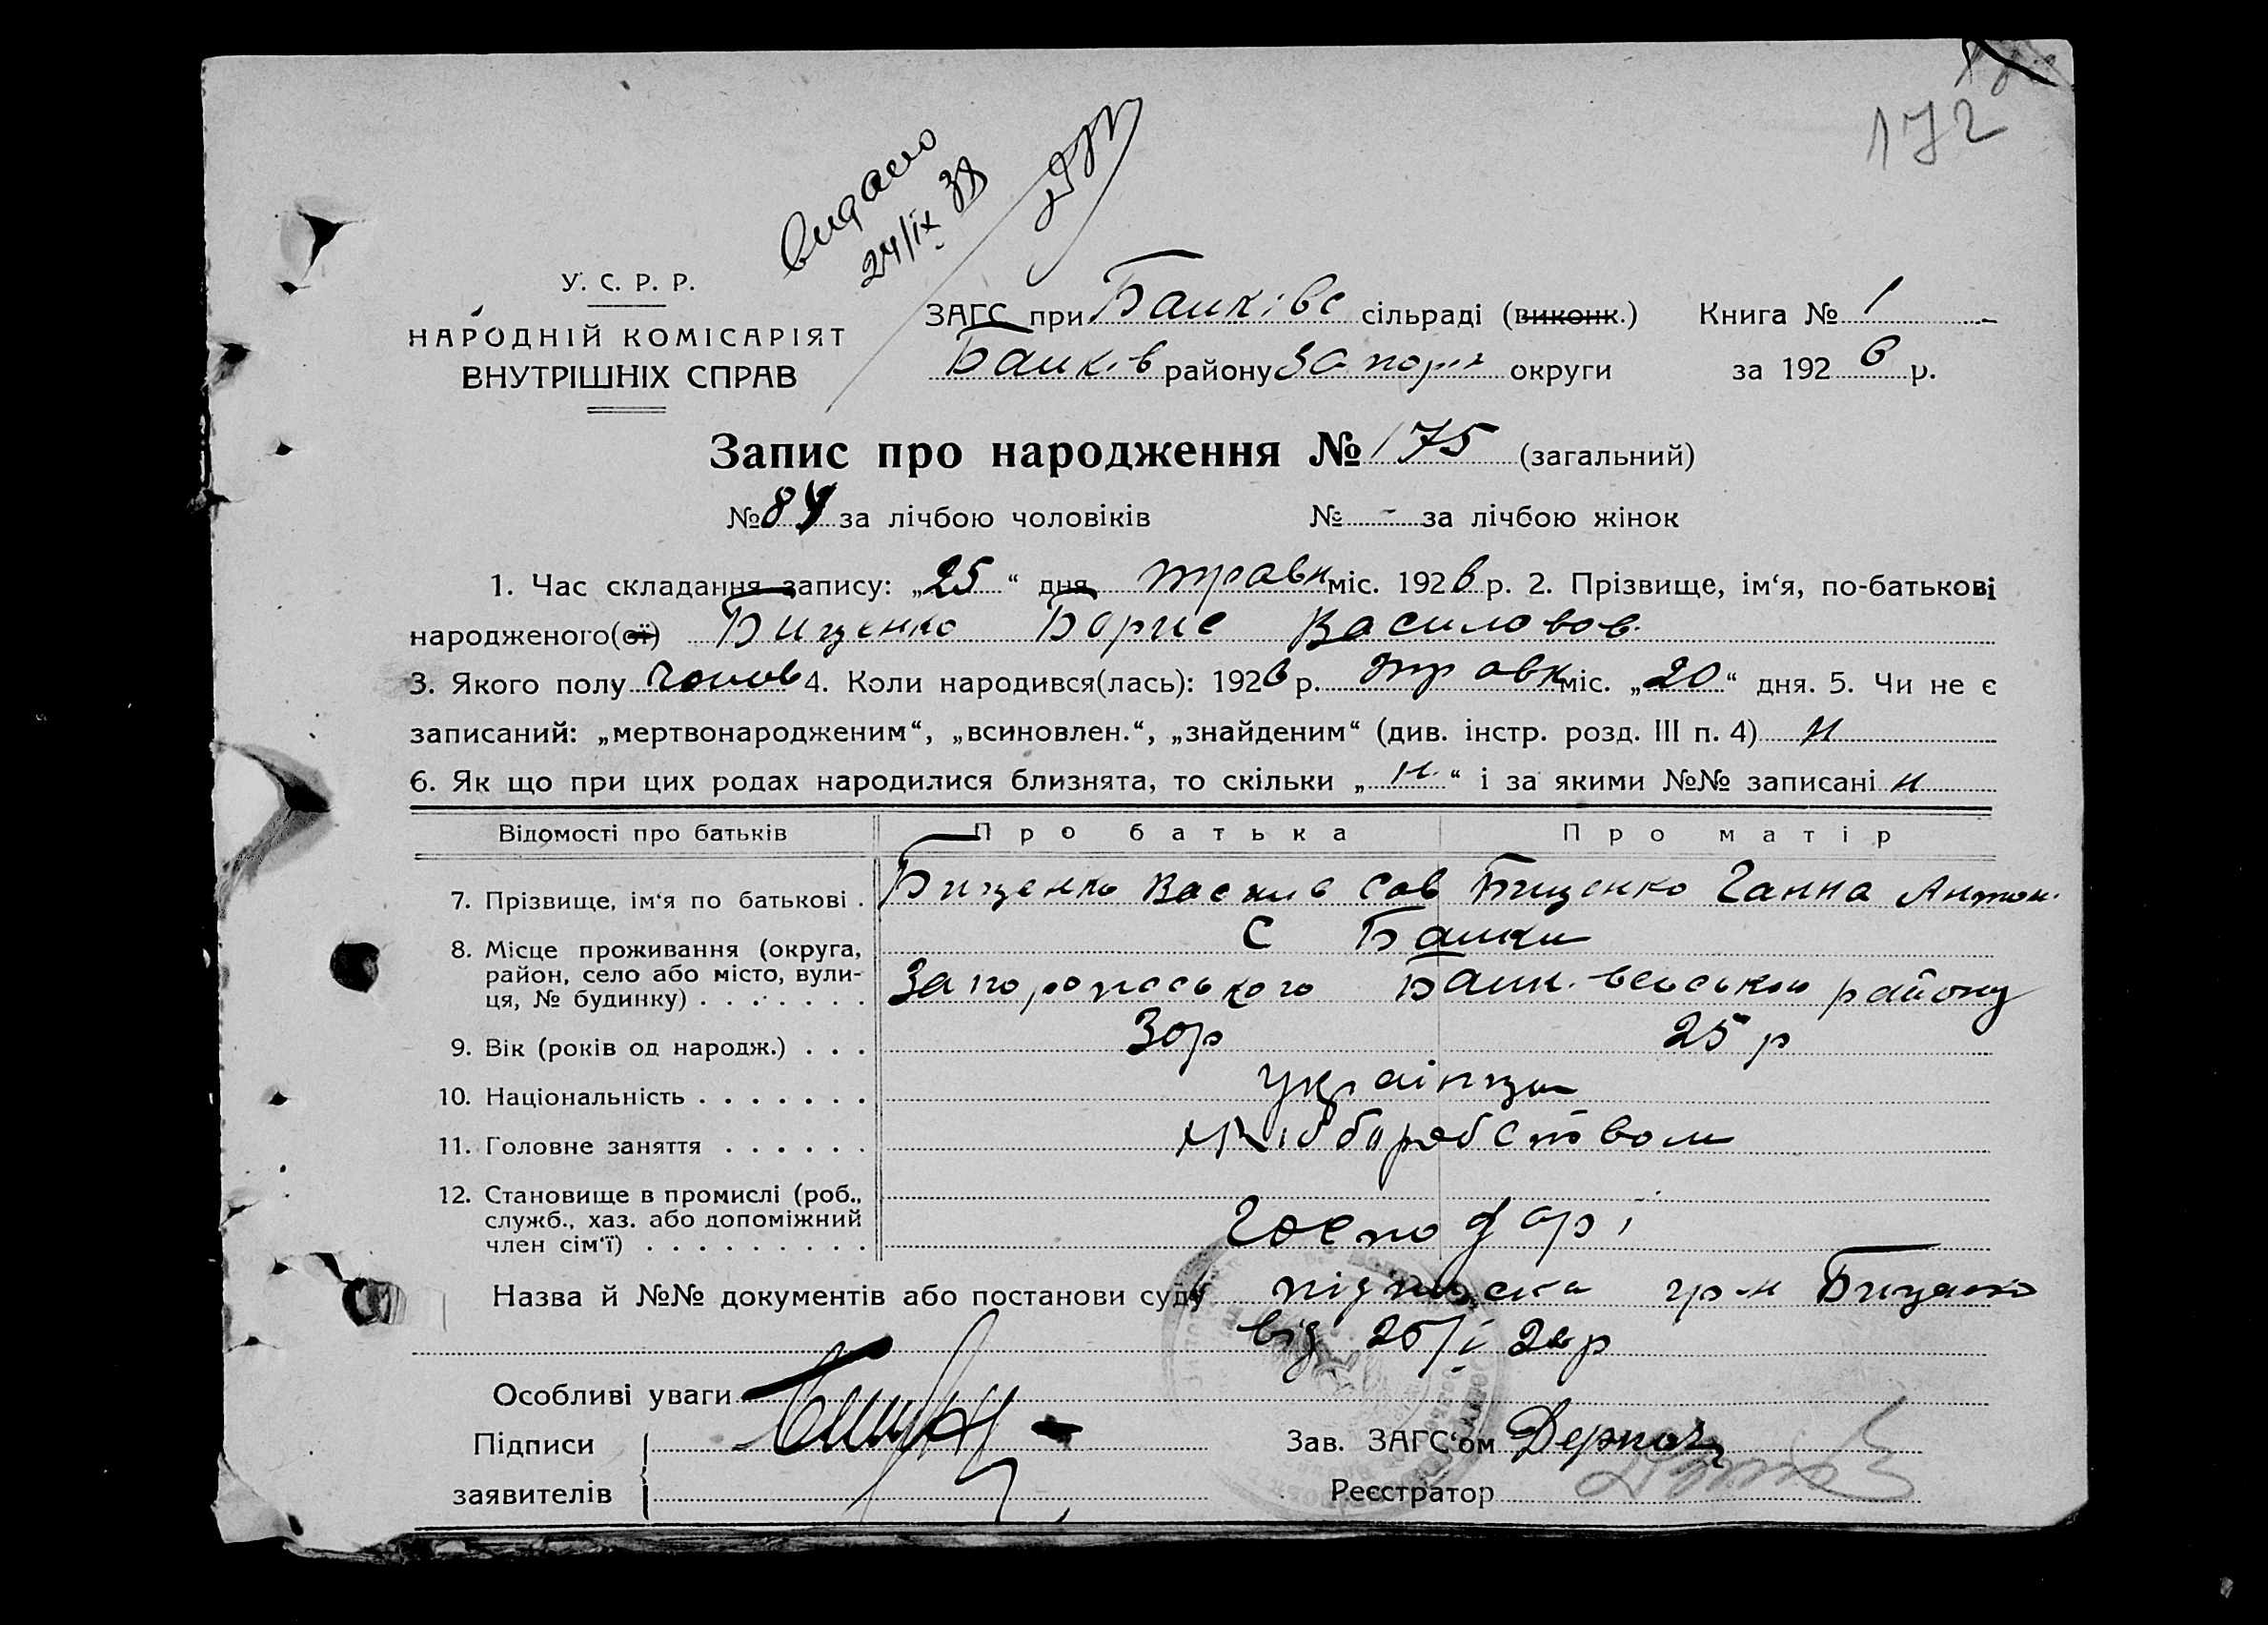 172
видано
24/ІХ 38
У. С. Р. Р.
НАРОДНІЙ КОМІСАРІЯТ
ВНУТРІШНІХ СПРАВ
ЗАГС при Балківс сільраді (виконк.) Книга № 1
Балків району Запоріз округи за 1926 р.
Запис про народження № 175 (загальний)
№ 84 за лічбою чоловіків № - за лічбою жінок
1. Час складання запису: „25“ дня травн міс. 1926 р. 2. Прізвище, ім‘я, по-батькові
народженого(ої) Бищенко Борис Васильов
3. Якого полу чолов 4. Коли народився(лась): 1926 р. травн міс. „20“ дня. 5. Чи не є
записаний: „мертвонародженим“, „всиновлен.“, „знайденим“ (див. інстр. розд. III п. 4) н
6. Як що при цих родах народилися близнята, то скільки „н.“ і за якими №№ записані н
Відомості про батьків Про батька Про матір
7. Прізвище, ім‘я по батькові . Бищенко Василь Сав Бищенко Ганна Антон.
8. Місце проживання (округа, С Балки
район, село або місто, вули-
ця, № будинку) . . . . . . . Запорожського району
9. Вік (років од народж.) . . . 30 р 25 р
10. Національність . . . . . . . українци
11. Головне заняття . . . . . . хліборобством
12. Становище в промислі (роб.,
служб., хаз. або допоміжний
член сім‘ї) . . . . . . . . . Господарі
Назва й №№ документів або постанови суду підписка гр-н Бищенко
від 25/V 26 р
Особливі уваги
Підписи Зав. ЗАГС‘ом Деркач
заявителів Реєстратор